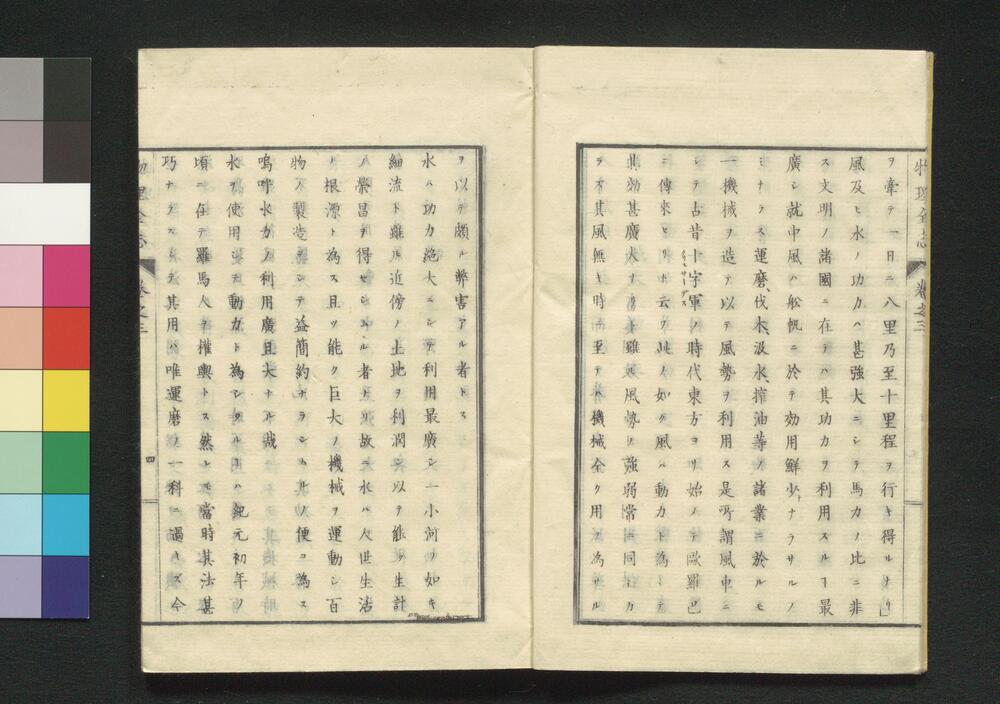 ヲ牽テ一日ニ八里乃至十里程ヲ行キ得ルナリ」
風及ヒ水ノ功力ハ甚強大ニシテ馬力ノ比ニ非
ス文明ノ諸國ニ在テハ其功力ヲ利用スルヿ最
廣シ就中風ハ舩帆ニ於テ効用鮮少ナラサルノ
ミナラス運磨、伐木、汲水、搾油等ノ諸業ニ於ルモ
一機械ヲ造テ以テ風勢ヲ利用ス是所謂風車ニ
シテ古昔十字軍ノ時代東方ヨリ始メテ歐羅巴
ニ傳來セリト云フ此ノ如ク風ハ動力ト為シテ
其効甚廣大ナリト雖𪜈風勢ノ強弱常ニ同シカ
ラス其風無キ時ニ至テハ機械全ク用ヲ為サル
ヲ以テ頗ル弊害アル者トス
水ハ功力絶大ニシテ利用最廣シ一小河ノ如キ
細流ト雖𪜈近傍ノ土地ヲ利潤シ以テ能ク生計
ノ榮昌ヲ得セシムル者ナリ故ニ水ハ人世生活
ノ根源ト為ス且ツ能ク巨大ノ機械ヲ運動シ百
物ヲ製造シテ益簡約ナラシムルノ便ヲ為ス
嗚呼水力ノ利用廣且大ナル哉
水ヲ使用シテ動力ト為シタルハ紀元初年ノ
頃ニ在テ羅馬人ヲ權輿トス然レモ當時其法甚
巧ナラスシテ其用ハ唯運磨ノ一科ニ過キス今
物理全志
卷之三
四